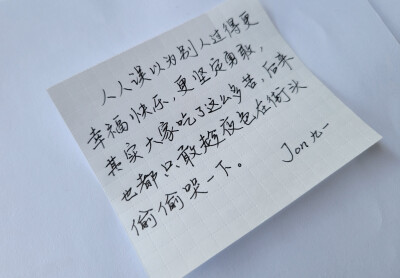 人人误以为别人过得更
幸福快乐，更坚定勇敢，
其实大家吃了这么多苦，后来
也都只敢趁夜色在街头
偷偷哭一下。